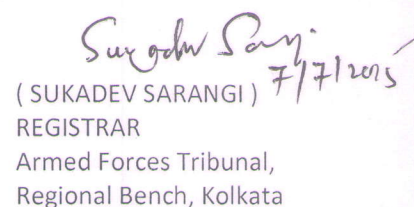 Sukadev Sarangi
7/7/2025
( SUKADEV SARANGI )
REGISTRAR
Armed Forces Tribunal,
Regional Bench, Kolkata